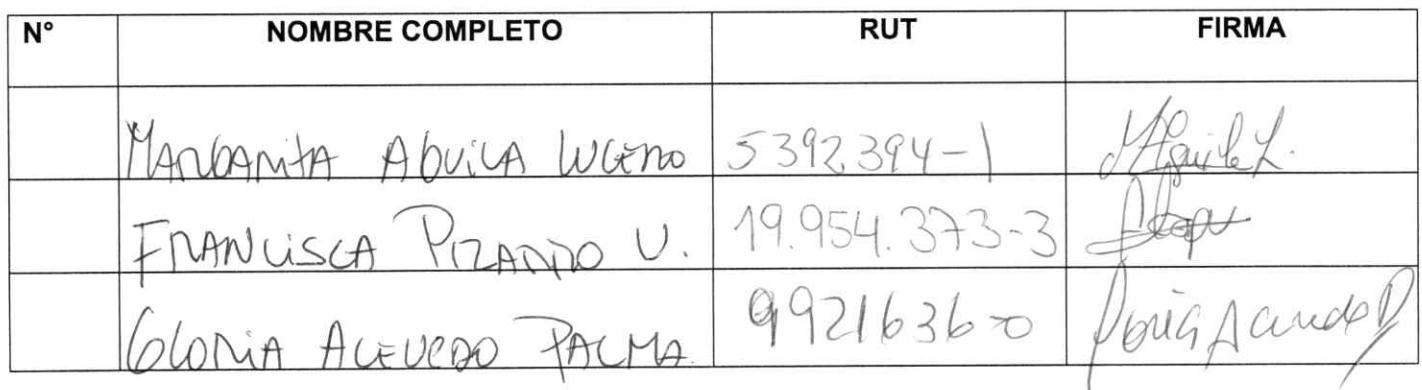 N° NOMBRE COMPLETO RUT FIRMA
MARGARITA AGUILA LUCERO 5392394-1 MAguilaL.
FRANCISCA PIZARRO U. 19.954.373-3
GLORIA ACEVEDO PALMA 9921636-0 Gloria Acevedo P